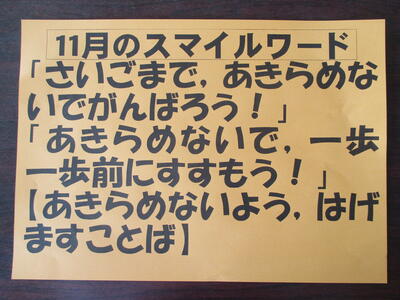 11月のスマイルワード
「さいごまで，あきらめな
いでがんばろう！」
「あきらめないで，一歩
一歩前にすすもう！」
【あきらめないよう，はげ
ますことば】